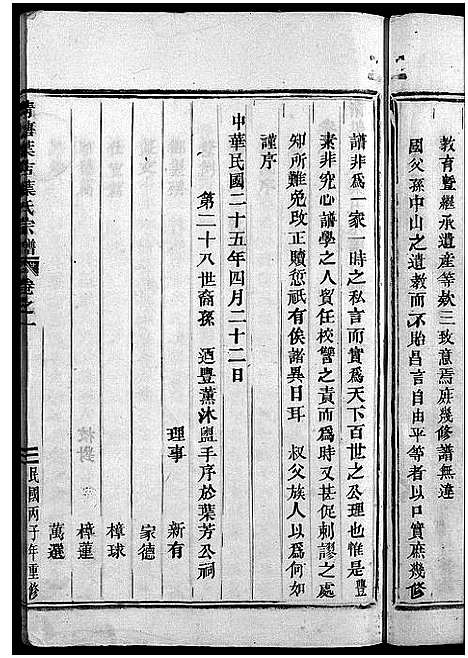 教育暨繼承遺產等欵三致意焉庶幾修譜無違
國父孫中山之遺教而不貽昌言自由平等者以口實庶幾修
譜非爲一家一時之私言而實爲天下百世之公理也惟是豐
素非究心譜學之人貿任校讐之責而爲時又甚促刺謬之處
知所難免改正贖愆祇有俟諸異日耳 叔父族人以爲何如
謹序
中華民國二十五年四月二十二日
第二十八世裔孫 迺豐薰沐盥手序於葉芳公祠
理事 新有
家德
樟球
樟薑
萬選
葉氏宗譜 卷之一
民國丙子年重修